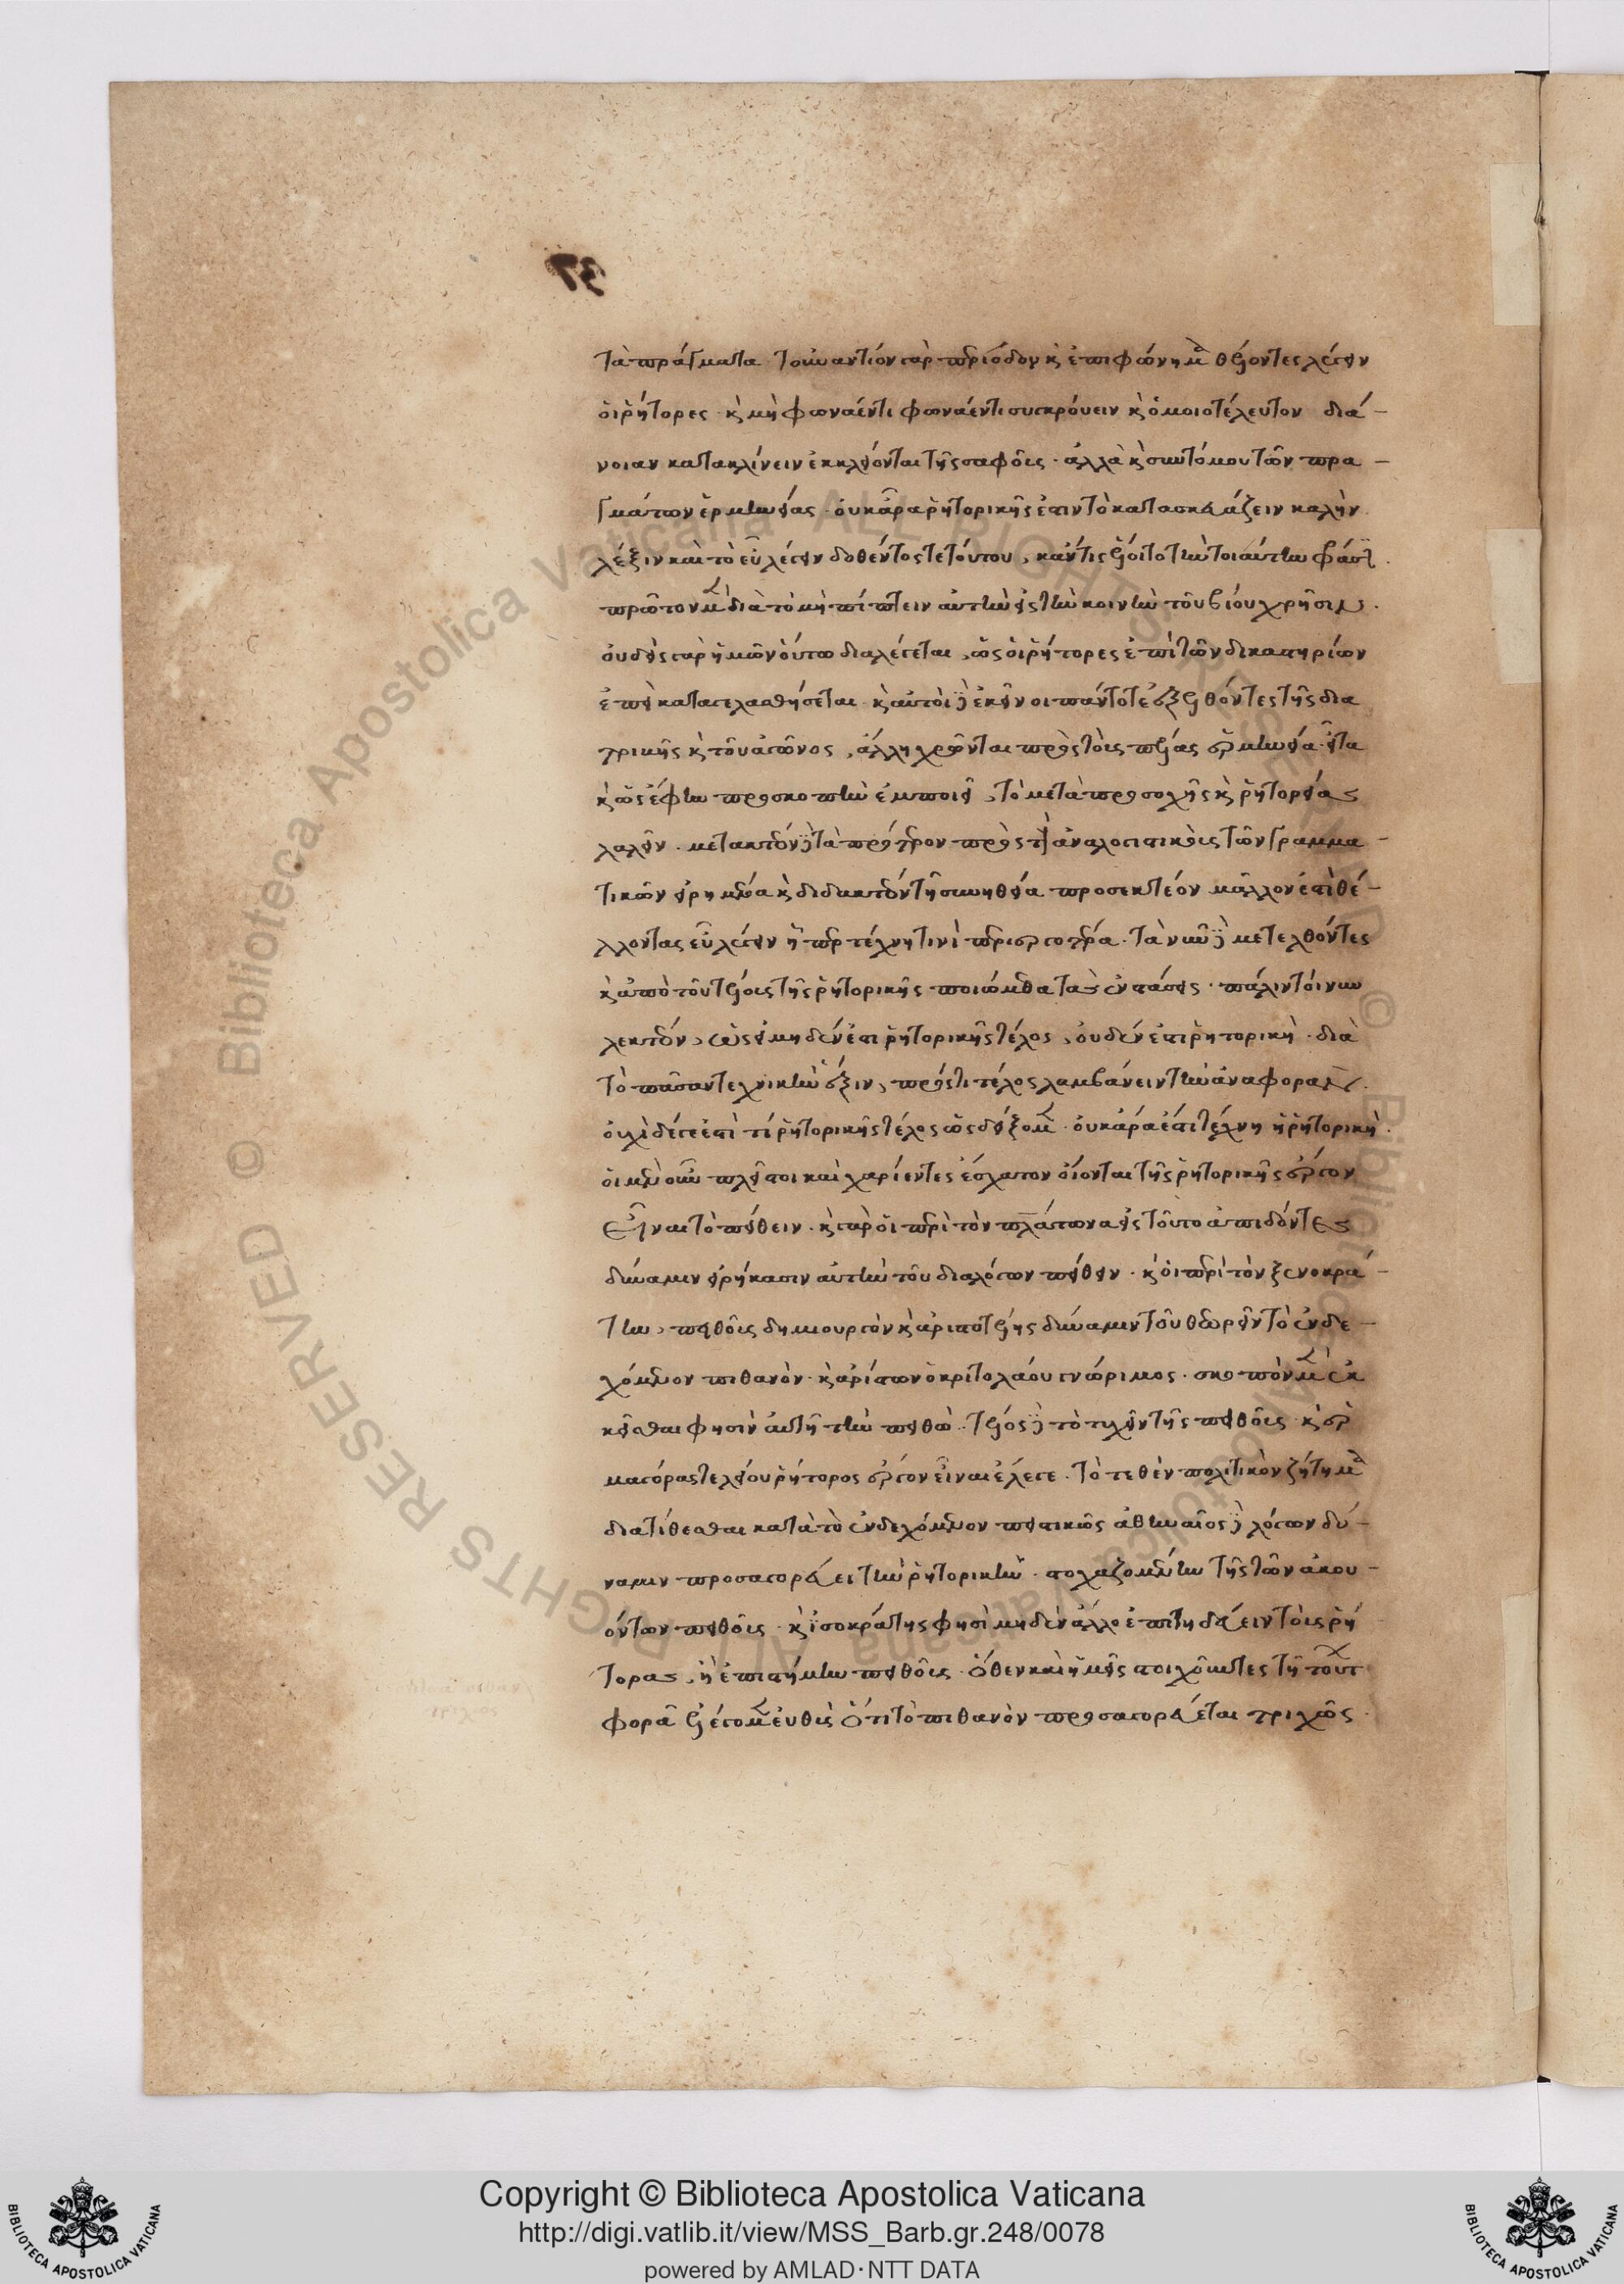 τὰ πράγματα τοὐναντίον γὰρ περίοδον κ ἐπιφώνημα θέλοντες λέγειν
οἱ ῥήτορες · κ μὴ φωνάεντι φωνάεντι συγκρούειν κ ὁμοιοτέλευτον διά-
νοιαν κατακλίνειν ἐκκλείονται τῆς σαφοῦς · ἀλλὰ κ συντόμου τῶν πρα-
γμάτων ἑρμηνείας · οὐκ ἄρα ῥητορικῆς ἐστιν τὸ κατασκευάζειν καλὴν
λέξιν καὶ τὸ εὖ λέγειν δοθέντος τε τούτου, κἄν τις ἕλοιτο τὴν τοιαύτην φράσιν.
πρῶτον μὲν διὰ τὸ μὴ πίπτειν αὐτὴν εἰς τὴν κοινὴν τοῦ βίου χρῆσιν.
οὐδεὶς γὰρ ἡμῶν οὕτω διαλέγεται, ὡς οἱ ῥήτορες ἐπὶ τῶν δικαστηρίων
ἐπεὶ καταγελασθήσεται · κ αὐτοὶ δὲ ἐκεῖνοι πάντοτε ἐξελθόντες τῆς δια
τριβῆς κ τοῦ ἀγῶνος, ἄλλη χρῶνται πρὸς τοὺς πέλας ἑρμηνεία · εἶτα
κ ὡς ἔφην προσκοπὴν ἐμποιεῖ, τὸ μετὰ προσοχῆς κ ῥητορείας
λαλεῖν. μετακτέον δὲ τὰ πρότερον πρὸς τοὺς ἀναλογιστικοὺς τῶν γραμμα-
τικῶν εἰρημένα κ διδακτέον τῆ συνηθεία προσεκτέον μᾶλλον ἐστὶ θέ-
λλοντας εὖ λέγειν ἤ περ τέχνη τινὶ περιεργοτέρα. τὰ νῦν δὲ μετελθόντες
κ ἀπὸ τοῦ τέλους τῆς ῥητορικῆς ποιώμεθα τὰς ἐνστάσεις · πάλιν τοίνυν
λεκτέον, ὡς εἰ μηδέν ἐστι ῥητορικῆς τέλος, οὐδέν ἐστι ῥητορικὴ · διὰ
τὸ πᾶσαν τεχνικὴν ἕξιν, πρός τι τέλος λαμβάνειν τὴν ἀναφοράν.
οὐχὶ δέ γε ἐστὶ τί ῥητορικῆς τέλος ὡς δείξομεν · οὐκ ἄρα ἐστι τέχνη ἡ ῥητορικὴ.
οἱ μὲν οὖν πλεῖστοι καὶ χαρίεντες ἔσχατον οἴονται τῆς ῥητορικῆς ἔργον
εἶναι τὸ πείθειν · κ γὰρ οἱ περὶ τὸν πλάτωνα εἰς τοῦτο ἀπιδόντες
δύναμιν εἰρήκασιν αὐτὴν τοῦ διαλόγων πείθειν · κ οἱ περὶ τὸν ξενοκρά-
την, πειθοῦς δημιουργὸν κ ἀριστοτέλης δύναμιν τοῦ θεωρεῖν τὸ ἐνδε-
χόμενον πιθανὸν · κ ἀρίστων ὁ κριτολάου γνώριμος · σκοπὸν μὲν ἐκ
κεῖσθαι φησὶν αὐτῆ τὴν πειθώ. τέλος δὲ τὸ τυχεῖν τῆς πειθοῦς · κ ἑρ
μαγόρας τελείου ῥήτορος ἔργον εἶναι ἔλεγε. τὸ τεθὲν πολιτικὸν ζήτημα
διατίθεσθαι κατὰ τὸ ἐνδεχόμενον πειστικῶς ἀθηναῖος δὲ λόγων δύ-
ναμιν προσαγορεύει τὴν ῥητορικὴν · στοχαζομένην τῆς τῶν ἀκου-
όντων πειθοῦς · κ ἰσοκράτης φησὶ μηδὲν ἄλλο ἐπιτηδεύειν τοὺς ῥή
τορας, ἢ ἐπιστήμην πειθοῦς · ὅθεν καὶ ἡμεῖς στοιχοῦντες τῆ τούτων
φορᾶ λέγομεν εὐθὺς ὅτι τὸ πιθανὸν προσαγορεύεται τριχῶς.
Copyright © Biblioteca Apostolica Vaticana
http://digi.vatlib.it/view/MSS_Barb.gr.248/0078
powered by AMLAD · NTT DATA
BIBLIOTECA APOSTOLICA VATICANA
BIBLIOTECA APOSTOLICA VATICANA